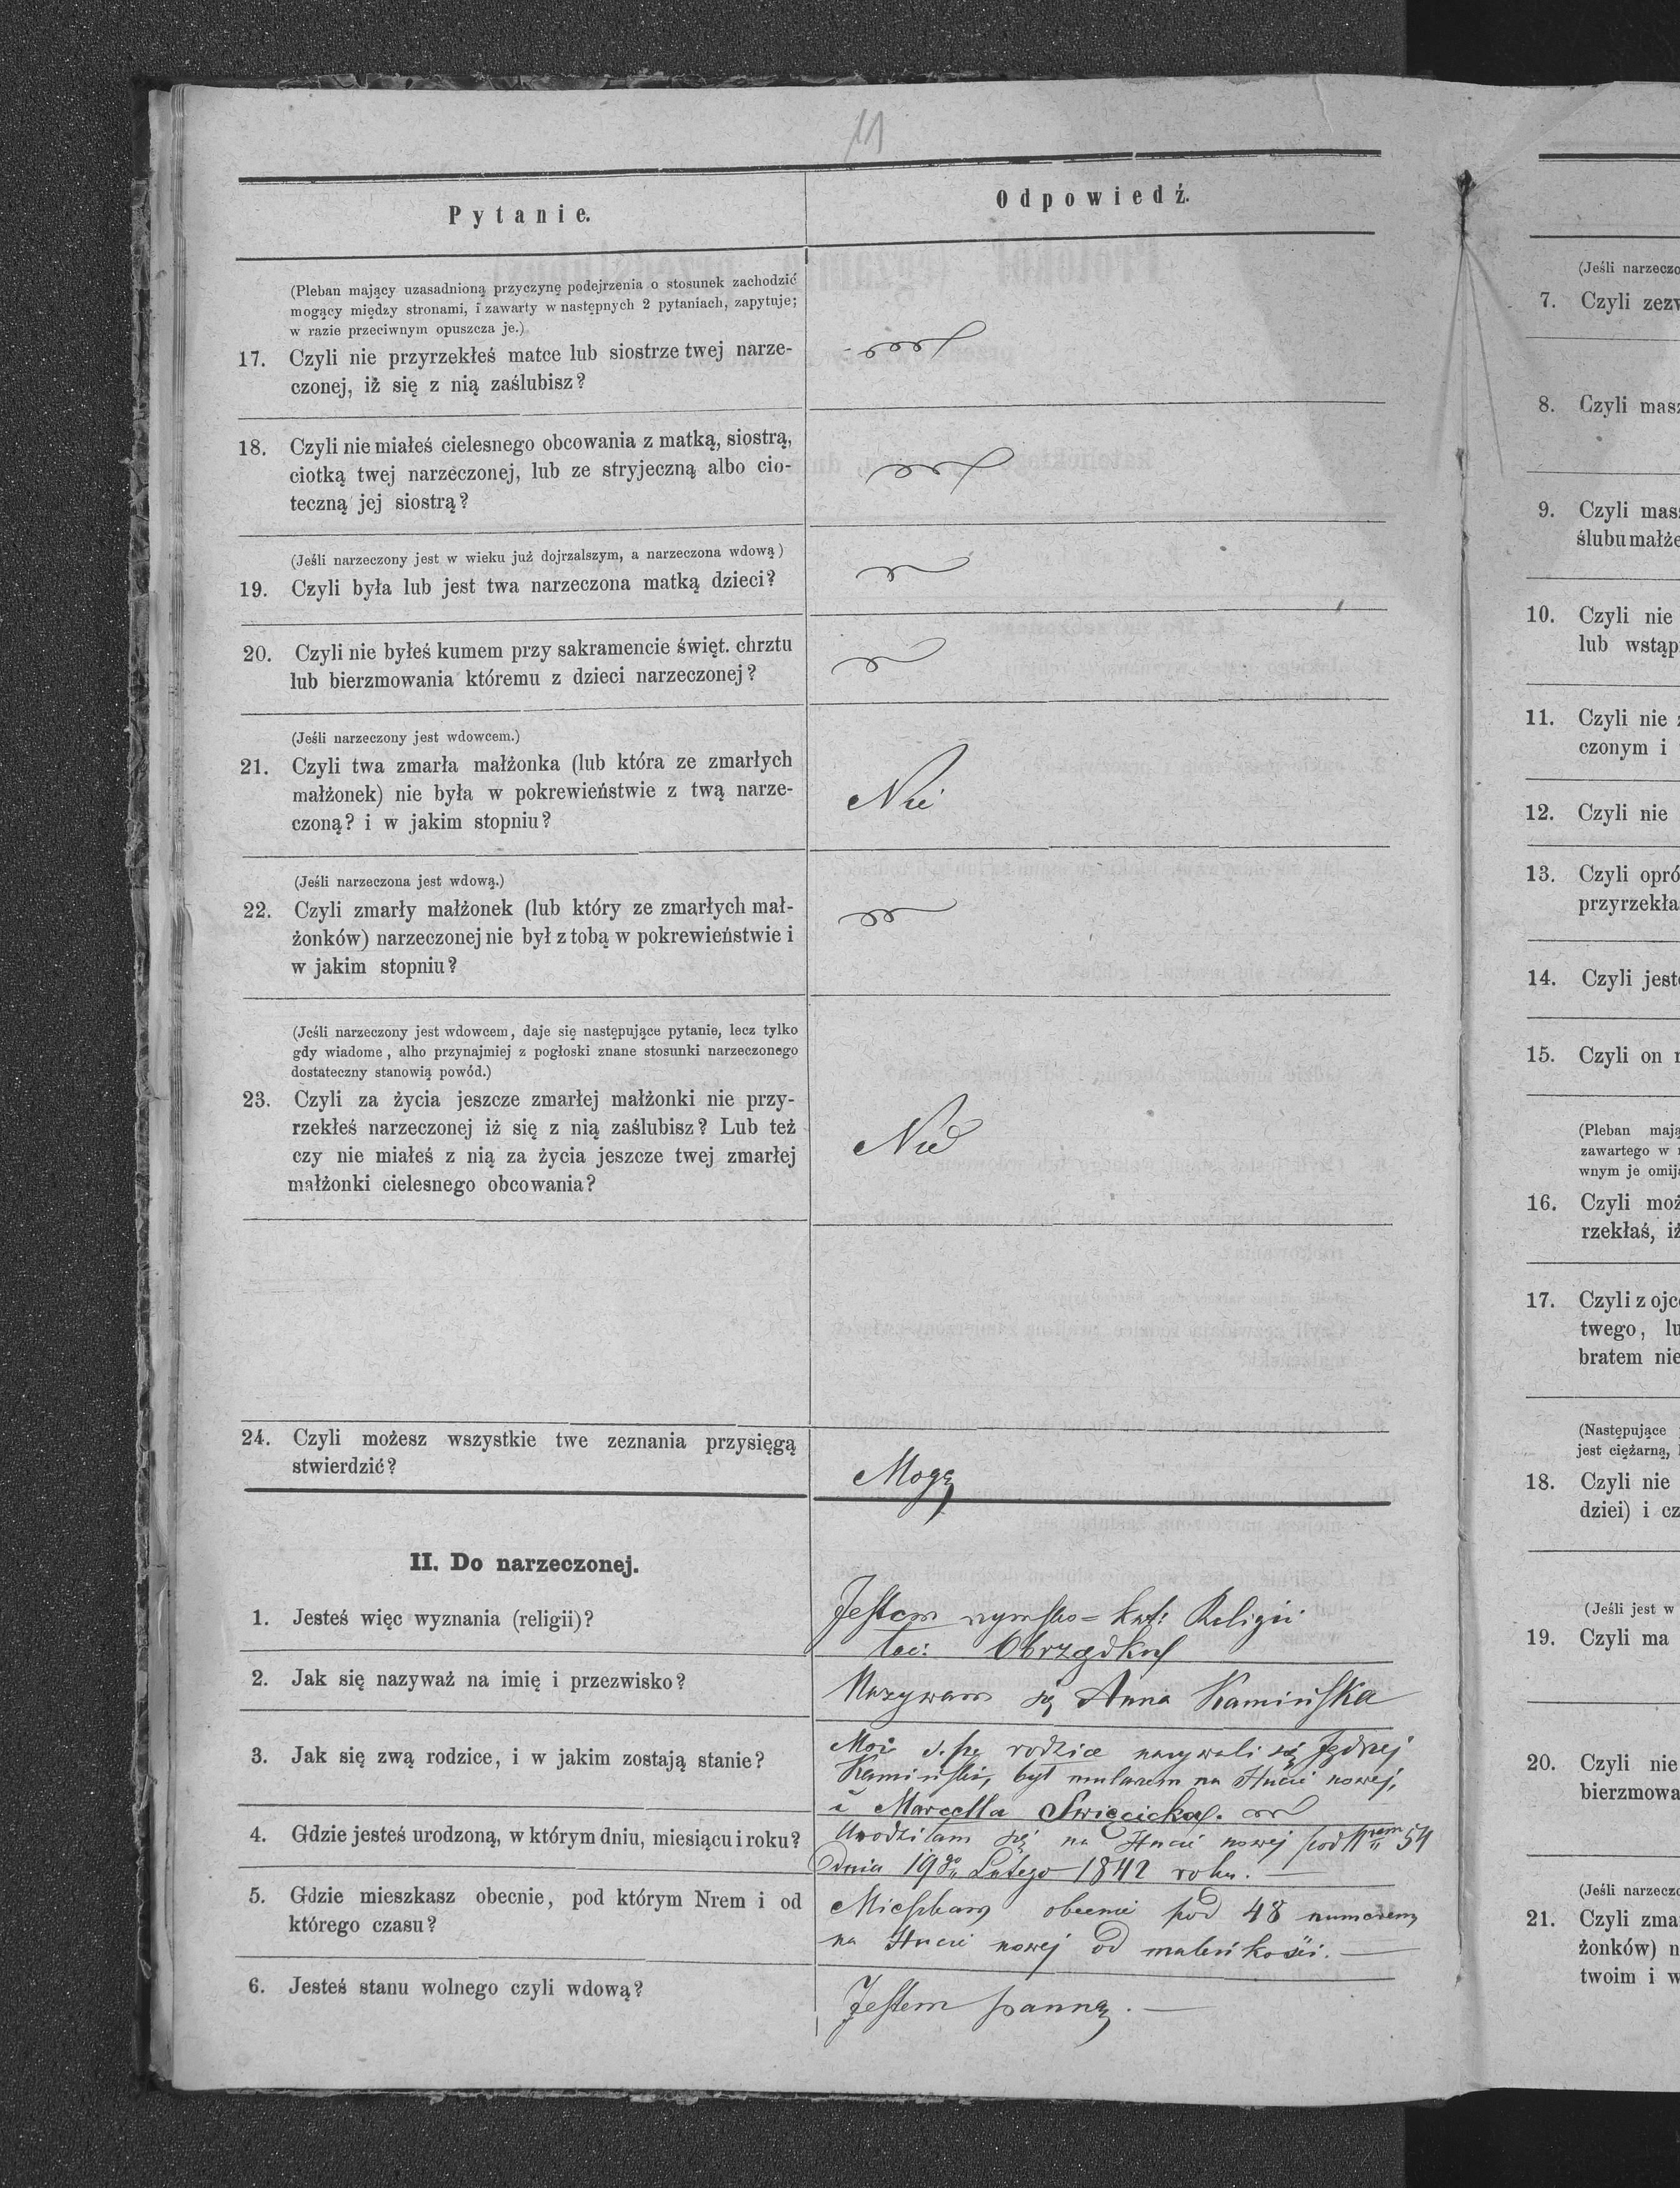 11
Pytanie.
Odpowiedź.
(Pleban mający uzasadnioną przyczynę podejrzenia o stosunek zachodzić
mogący między stronami, i zawarty w następnych 2 pytaniach, zapytuje;
w razie przeciwnym opuszcza je.)
17. Czyli nie przyrzekłeś matce lub siostrze twej narze-
czonej, iż się z nią zaślubisz?
18. Czyli nie miałeś cielesnego obcowania z matką, siostrą,
ciotką twej narzeczonej, lub ze stryjeczną albo cio-
teczną jej siostrą?
(Jeśli narzeczony jest w wieku już dojrzalszym, a narzeczona wdową)
19. Czyli była lub jest twa narzeczona matką dzieci?
20. Czyli nie byłeś kumem przy sakramencie święt. chrztu
lub bierzmowania któremu z dzieci narzeczonej?
(Jeśli narzeczony jest wdowcem.)
21. Czyli twa zmarła małżonka (lub która ze zmarłych
małżonek) nie była w pokrewieństwie z twą narze-
czoną? i w jakim stopniu?
Nie
(Jeśli narzeczona jest wdową.)
22. Czyli zmarły małżonek (lub który ze zmarłych mał-
żonków) narzeczonej nie był z tobą w pokrewieństwie i
w jakim stopniu?
(Jeśli narzeczony jest wdowcem, daje się następujące pytanie, lecz tylko
gdy wiadome, alho przynajmiej z pogłoski znane stosunki narzeczonego
dostateczny stanowią powód.)
23. Czyli za życia jeszcze zmarłej małżonki nie przy-
rzekłeś narzeczonej iż się z nią zaślubisz? Lub też
czy nie miałeś z nią za życia jeszcze twej zmarłej
małżonki cielesnego obcowania?
Nie
24. Czyli możesz wszystkie twe zeznania przysięgą
stwierdzić?
Mogę
II. Do narzeczonej.
1. Jesteś więc wyznania (religii)?
Jestem rzymsko=kat: Religii
łac: Obrządku
2. Jak się nazyważ na imię i przezwisko?
Nazywam się Anna Kamińska
3. Jak się zwą rodzice, i w jakim zostają stanie?
Moi ś. p. rodzice nazywali się Jędrzej
Kamiński, był mularzem na Hucie nowej,
i Marcella Swięcicka.
4. Gdzie jesteś urodzoną, w którym dniu, miesiącu i roku?
Urodziłam się na Hucie nowej pod Nrem 54
dnia 19go Lutego 1842 roku.
5. Gdzie mieszkasz obecnie, pod którym Nrem i od
którego czasu?
Mieszkam obecnie pod 48 numerem
na Hucie nowej od maleńkości.
6. Jesteś stanu wolnego czyli wdową?
Jestem panną.
(Jeśli narzeczo
7. Czyli zezw
8. Czyli masz
9. Czyli masz
ślubu małże
10. Czyli nie
lub wstąp
11. Czyli nie
czonym i
12. Czyli nie
13. Czyli opró
przyrzekła
14. Czyli jest
15. Czyli on
(Pleban mają
zawartego w
wnym je omij
16. Czyli moż
rzekłaś, iż
17. Czyli z ojc
twego, lu
bratem nie
(Następujące
jest ciężarną,
18. Czyli nie
dziei) i cz
(Jeśli jest w
19. Czyli ma
20. Czyli nie
bierzmowa
(Jeśli narzeczo
21. Czyli zma
żonków) n
twoim i w